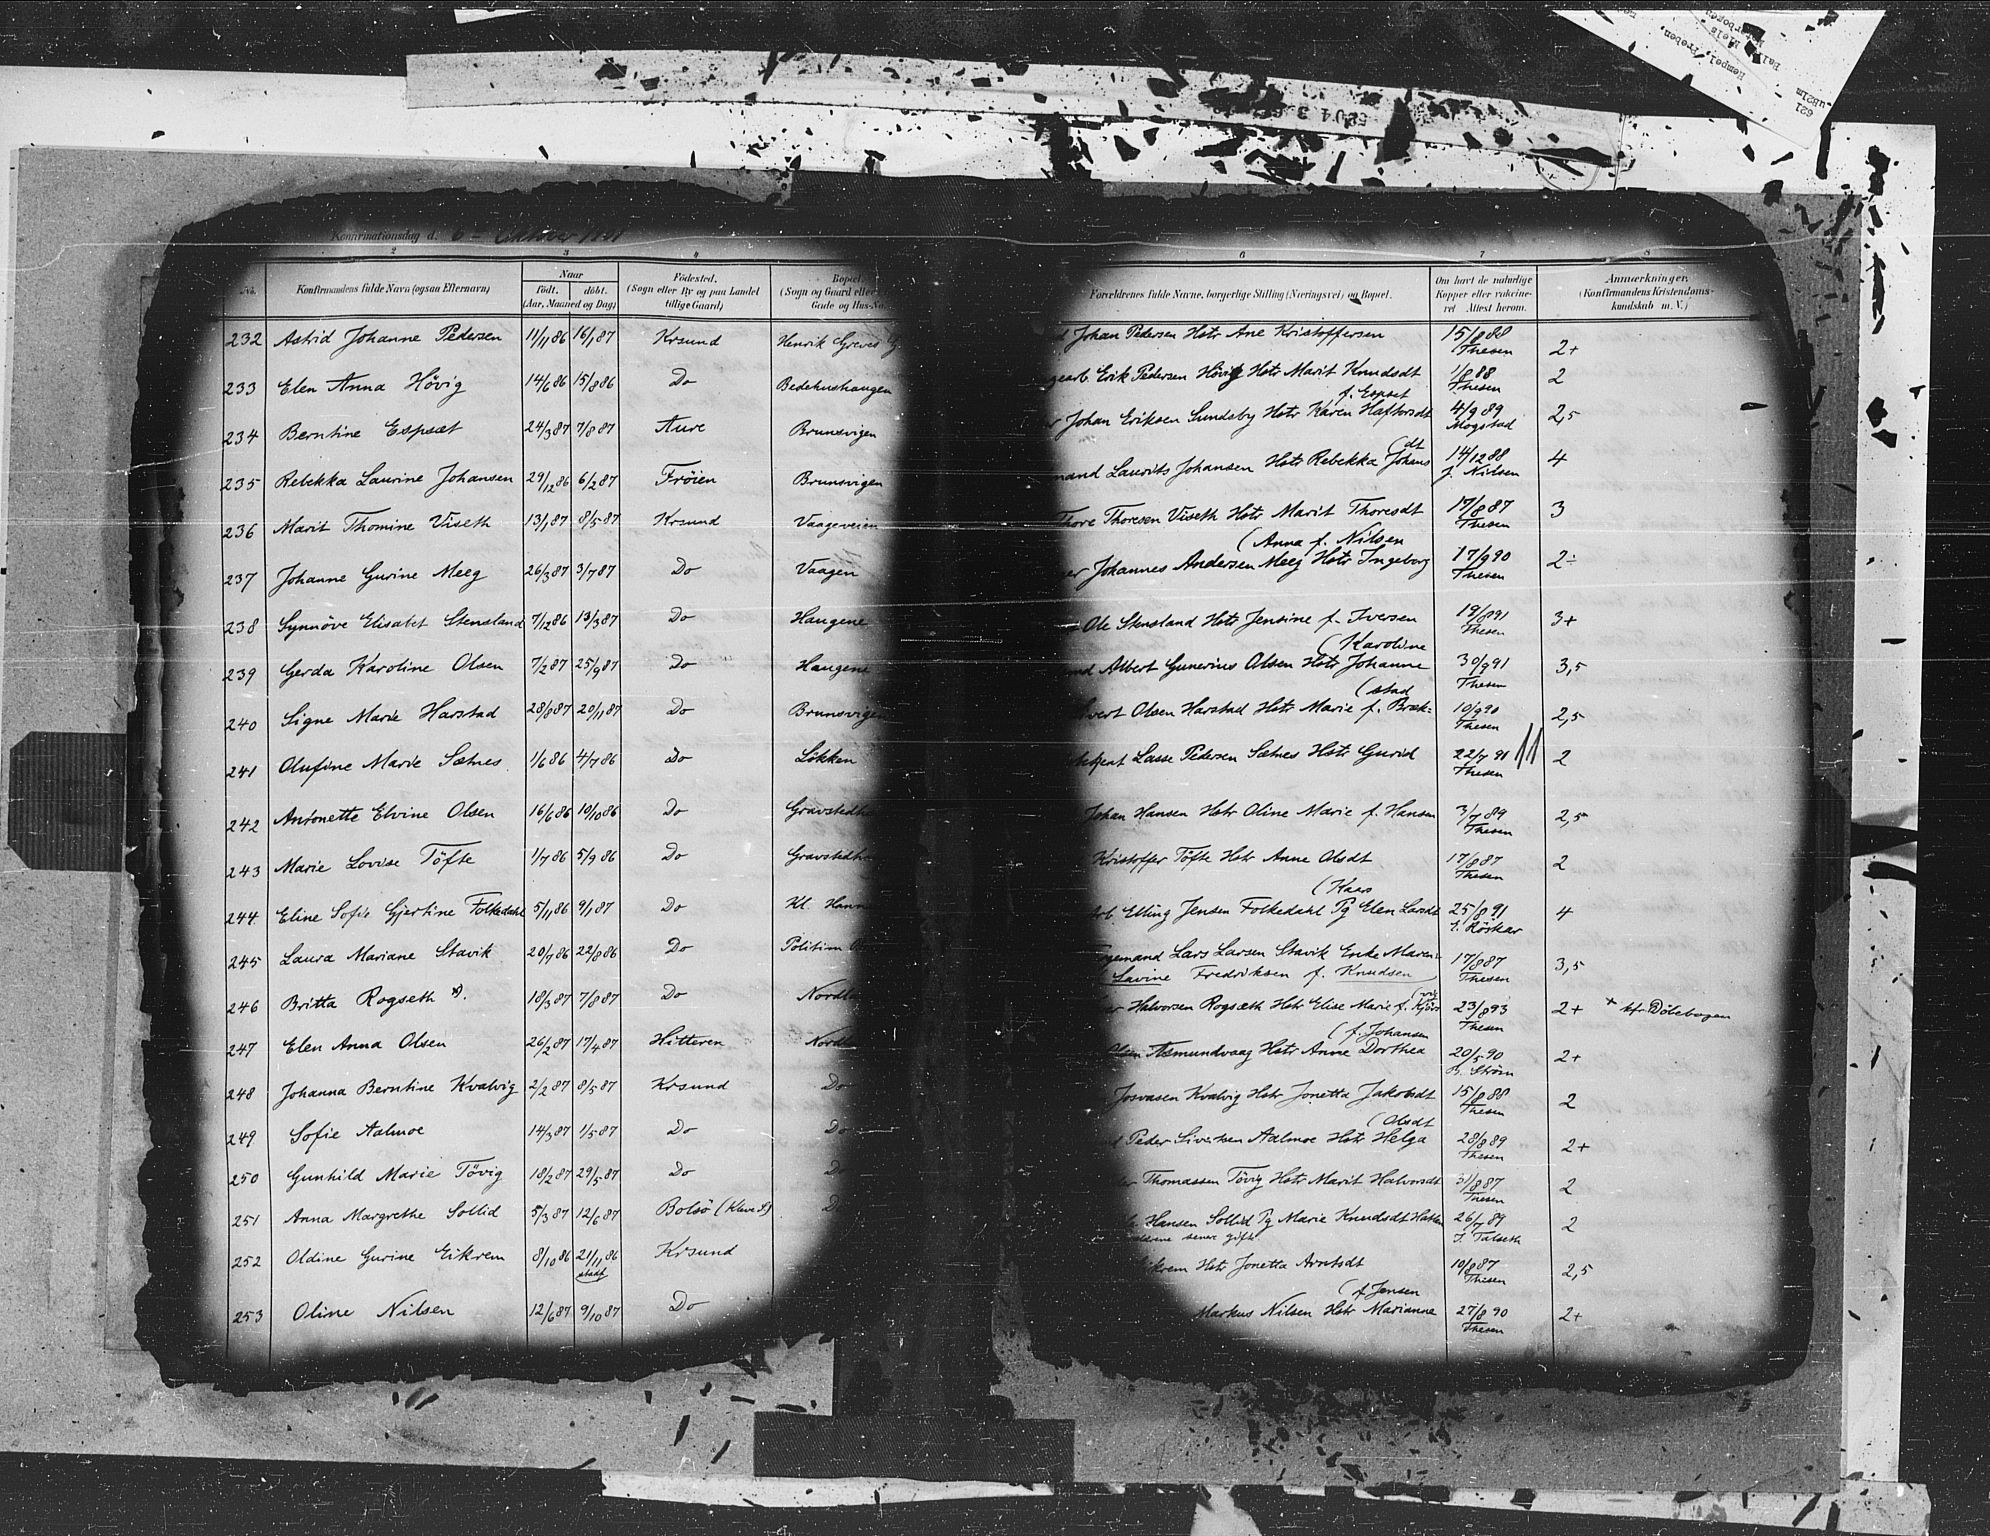 Konfirmationsdag d. 6 Oktober
2 3 4 6 7 8
No. Konfirmandens fulde Navn (ogsaa Efternavn) Naar født. døbt. (Aar, Maaned og Dag) Fødested. (Sogn eller By og paa Landet tillige Gaard) Bopæl. (Sogn og Gaard eller Gade og Hus-No.
Forældrenes fulde Navne, borgerlige Stilling (Næringsvei) og Bopæl. Om havt de naturlige Kopper eller vakcineret Attest herom. Anmærkninger. (Konfirmandens Kristendomskundskab m. V.)
232 Astrid Johanne Pedersen 11/11 86 16/1 87 Krsund Henrik Greves G Johan Pedersen Hstr Ane Kristoffersen 15/8 88 Thesen 2+
233 Elen Anna Hövig 14/6 86 15/8 86 Do Bedehushaugen Erik Pedersen Hövig Hstr Marit Knudsdt 1/8 88 Thesen 2
f. Espset
234 Berntine Espsæt 24/3 87 7/8 87 Aure Brunsvigen Johan Eriksen Sundsby Hstr Karen Haftorsdt 4/9 89 Mogstad 2,5
(dt
235 Rebekka Laurine Johansen 29/12 86 6/2 87 Fröien Brunsvigen mand Laurits Johansen Hstr Rebekka Johans 14/12 88 J. Nilsen 4
236 Marit Thomine Viseth 13/1 87 8/5 87 Krsund Vaageveien Thore Thoresen Viseth Hstr Marit Thoresdt 17/8 87 Thesen 3
(Anna f. Nilsen
237 Johanne Gurine Meeg 26/3 87 3/7 87 Do Vaagen er Johannes Andersen Meeg Hstr Ingeborg 17/9 90 Thesen 2÷
238 Synnöve Elisabet Stensland 7/12 86 13/3 87 Do Haugene Ole Stensland Hstr Jensine f. Iversen 19/8 91 Thesen 3+
(Karoline
239 Gerda Karoline Olsen 7/2 87 25/9 87 Do Haugene nd Albert Gunerius Olsen Hstr Johanne 30/9 91 Thesen 3,5
(stad
240 Signe Marie Harstad 28/8 87 20/11 87 Do Brunsvigen Olsen Harstad Hstr Marie f. Bræk= 10/9 90 Thesen 2,5
241 Olufine Marie Sætnes 1/6 86 4/7 86 Do Lökken Lasse Pedersen Sætnes Hstr Gurid 22/7 91 Thesen 2
242 Antonette Elvine Olsen 16/6 86 10/10 86 Do Gravstedh Johan Hansen Hstr Oline Marie f. Hansen 3/7 89 Thesen 2,5
243 Marie Lovise Töfte 1/7 86 5/9 86 Do Gravstedh Kristoffer Töfte Hstr Anne Olsdt 17/8 87 Thesen 2
(Kaas
244 Eline Sofie Gjertine Folkedahl 5/11 86 9/1 87 Do Kl. Hann arb. Elling Jensen Folkedahl Pg Elen Larsdt 25/8 91 4
245 Laura Mariane Stavik 20/7 86 22/8 86 Do Politim mand Lars Larsen Stavik Enke Maren= 17/8 87 Thesen 3,5
Lavine Fredriksen f. Knudsen
246 Britta Rogseth x). 18/3 87 7/8 87 Do Nordl Halvorsen Rogsæth Hstr Elise Marie f. Kjörs (vig 23/8 93 Thesen 2+ + kfr. Döbebogen
(f. Johansen
247 Elen Anna Olsen 26/2 87 17/4 87 Hitteren Nordl Olsen Asmundvaag Hstr Anne Dorthea 20/5 90 Ström 2+
248 Johanna Berntine Kvalvig 2/2 87 8/5 87 Krsund Do Josvasen Kvalvig Hstr Jonetta Jakobsdt 15/8 88 Thesen 2
(Olsdt
249 Sofie Aalmoe 14/3 87 1/5 87 Do Do Peder Sivertsen Aalmoe Hstr Helga 28/8 89 Thesen 2+
250 Gunhild Marie Tövig 18/2 87 29/5 87 Do Do Thomassen Tövig Hstr Marit Halvorsdt 31/8 87 Thesen 2
251 Anna Margrethe Sollid 5/3 87 12/6 87 Bolsö (Kleve S) D Hansen Sollid Pg Marie Knudsdt 26/7 89 J. Talseth 2
senere gift
252 Oldine Gurine Eikrem 8/10 86 21/11 86 stadf Krsund Eikrem Hstr Jonetta Arntsdt 10/8 87 Thesen 2,5
(f. Jensen
253 Oline Nilsen 12/6 87 9/10 87 Do Markus Nilsen Hstr Marianne 27/8 90 Thesen 2+